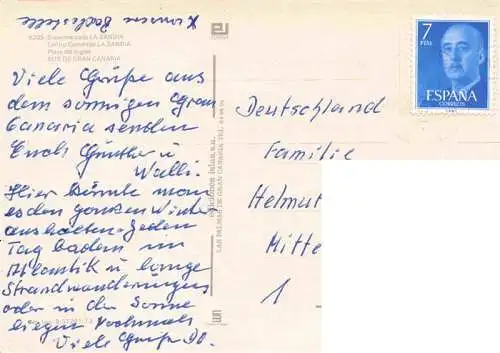 6205 - Supermercado LA SANDIA
Centro Comercial LA SANDIA
Playa del Inglés
SUR DE GRAN CANARIA
Viele Grüße aus
dem sonnigen Gran
Canaria senden
Euch Günther u
Walli.
Hier könnte man
es den ganzen Winter
aushalten. Jeden
Tag baden im
Atlantik u lange
Strandwanderungen
oder in der Sonne
liegen. Nochmals
Viele Grüße
ediciones islas, s.a.
LAS PALMAS DE GRAN CANARIA
Deutschland
Familie
Helmut
Mitte
1
7
PTAS
ESPAÑA
CORREOS